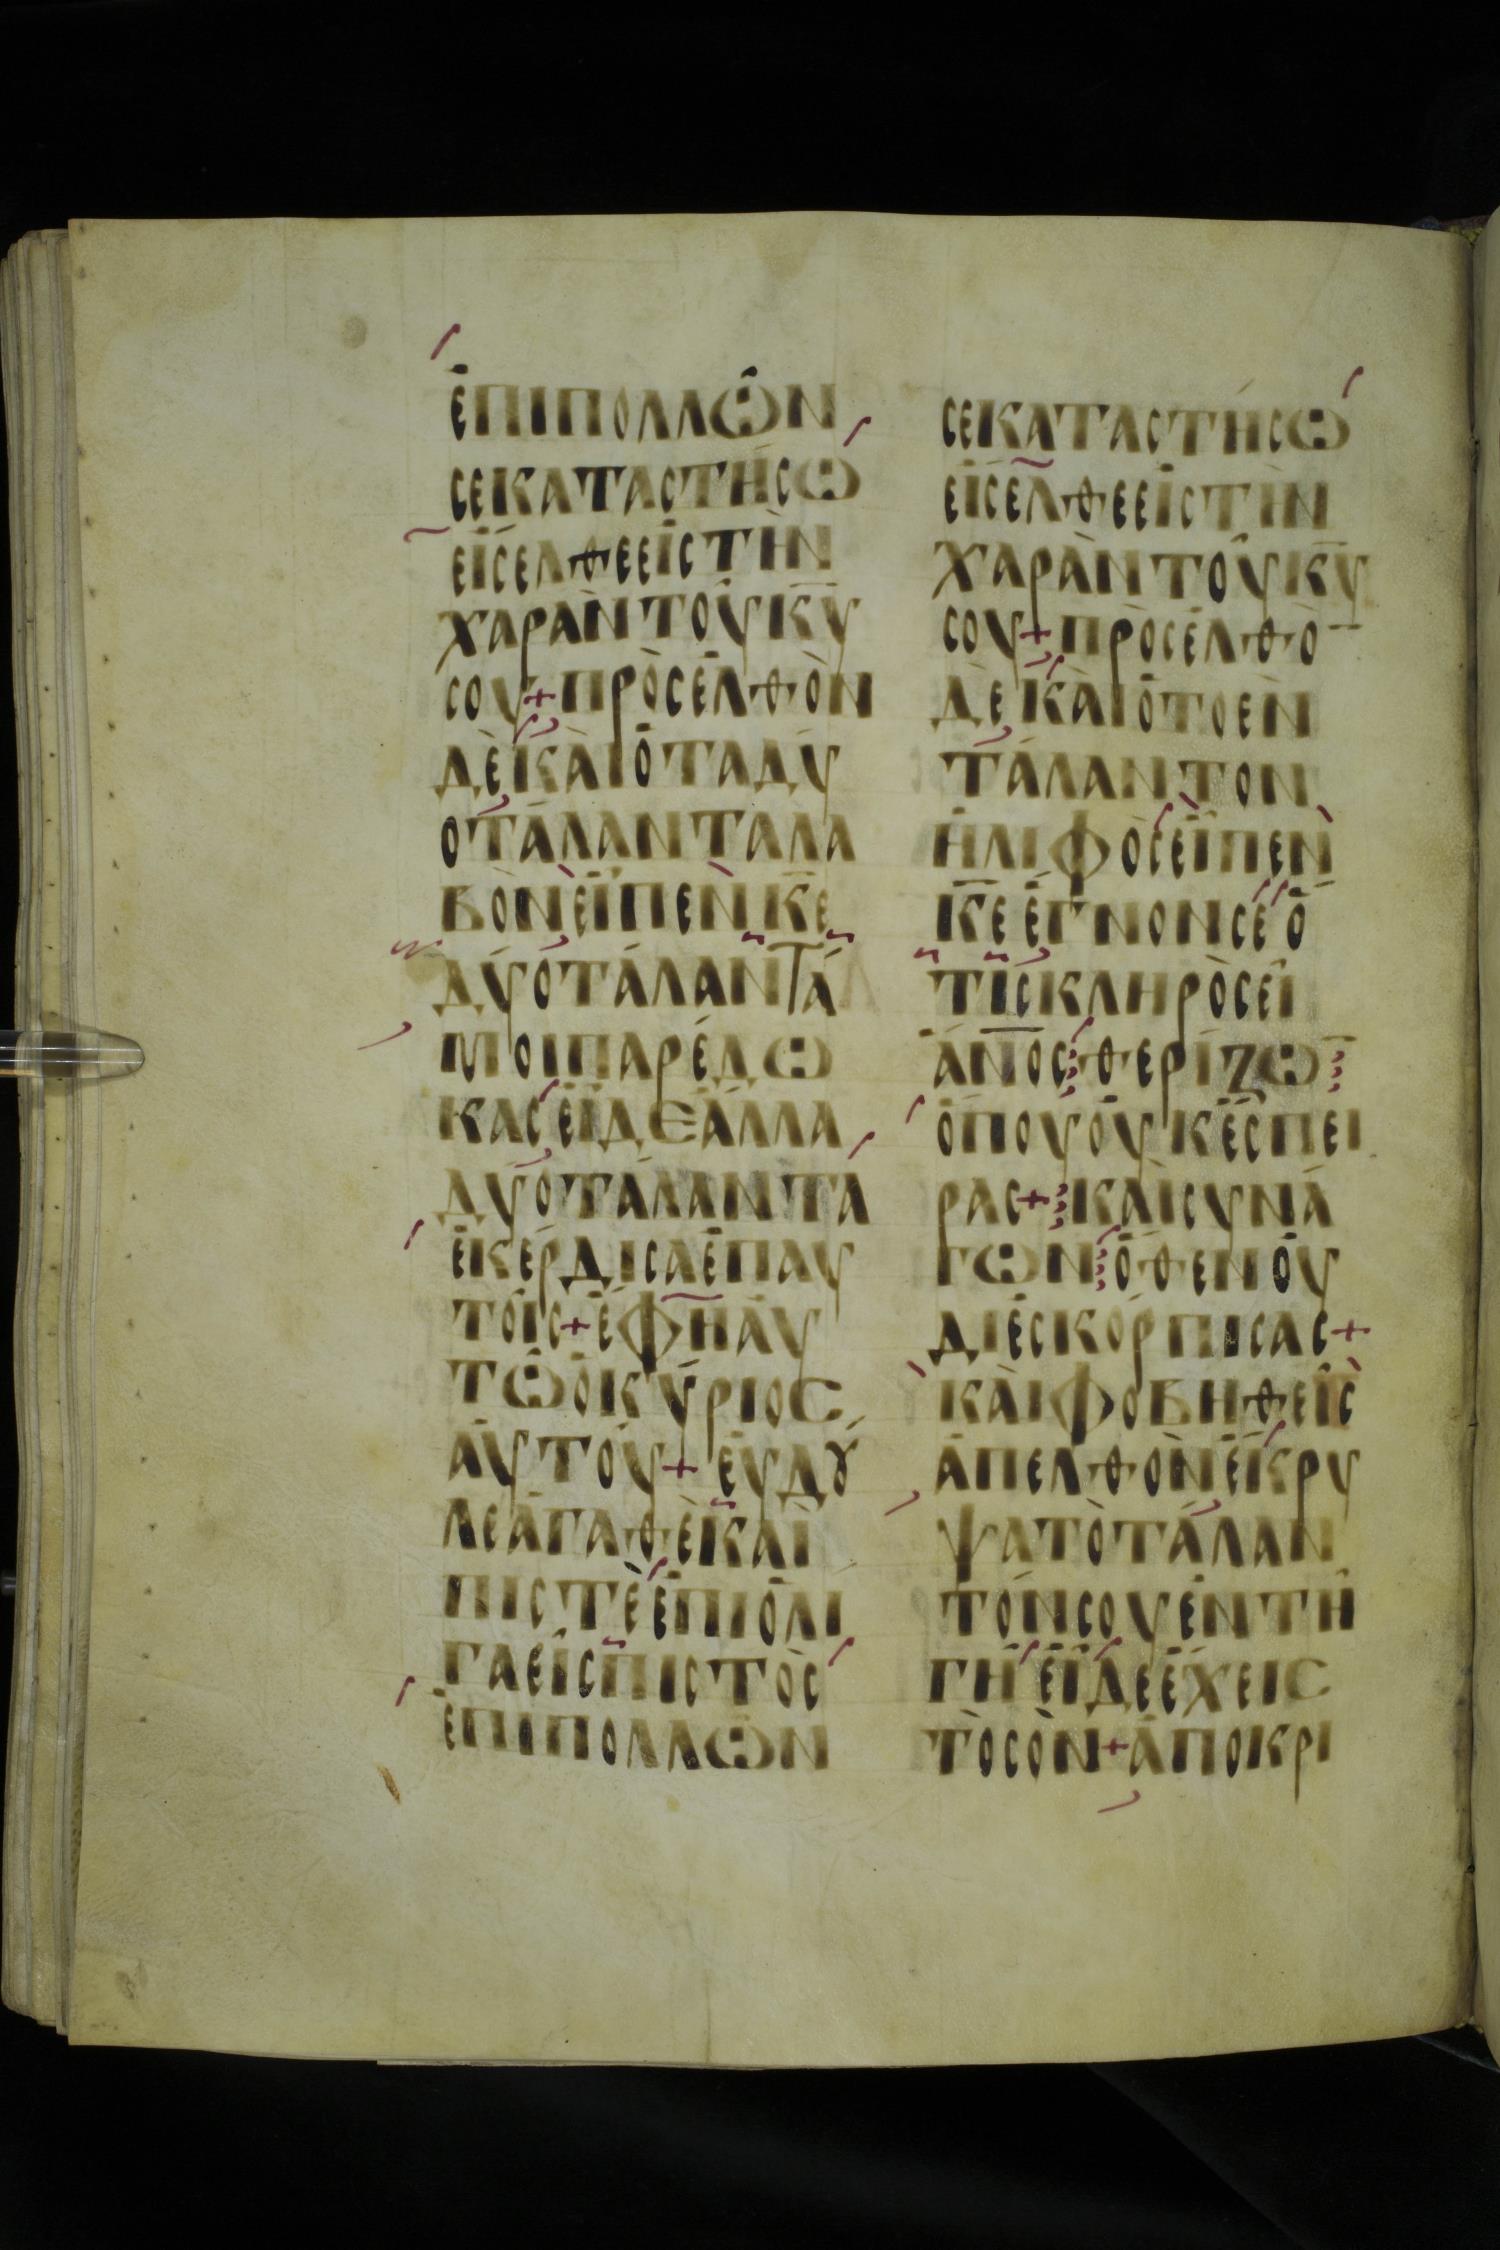 ἐπιπολλῶν
σεκαταστήσω
εἴσελθεεἰστὴν
χαρὰντοῦκ̅υ̅
σου+προσελθὼν
δὲκαὶὁταδύ
οτάλανταλα
βὸνεἶπενκ̅ε̅
δύοτάλαντά
μοιπαρέδω
κασεἴδεἄλλα
δύοτάλαντα
ἐκέρδισαἐπαυ
τοῖς+ἔφηαυ
τῶὁκύριος
αὐτοῦ+εὐδȣ
λεἀγαθὲκαὶ
πιστὲἐπιὀλί
γαεἶςπιστὸς
ἐπιπολλῶν
σεκαταστήσω
εἴσελθεεἰστὴν
χαρὰντοῦκ̅υ̅
σου+προσελθὸ̅
δὲκαὶὁτοὲν
τάλαντον
ἠλιφὸςεἶπεν
κ̅ε̅ἔγνονσεὅ
τισκληρὸςεἶ
ἄν̅ο̅ς̅θερίζω̅
ὅπουοὐκἔσπει
ρας+καὶσυνά
γωνὅθενοὐ
διεσκόρπισας+
καὶφοβηθεὶς
ἀπελθὸνἔκρυ
ψατὸτάλαν
τόνσουἐντῆ
γῆεἴδεἔχεις
τὸσὸν+ἀποκρι